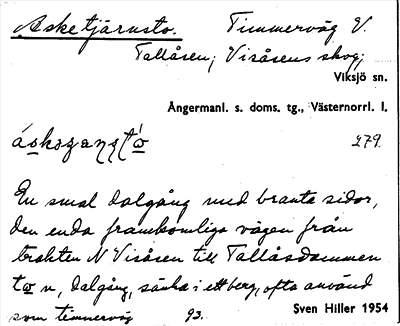 Asketjärnsto. Timmerväg V.
Tallåsen; Visåsens skog;
Viksjö sn.
Ångermanl. s. doms. tg., Västernorrl. l.
279.
En smal dalgång med branta sidor,
den enda framkomliga vägen från
trakten N Visåsen till Tallåsdammen
to n, dalgång, sänka i ett berg, ofta använd
som timmerväg 93. Sven Hiller 1954